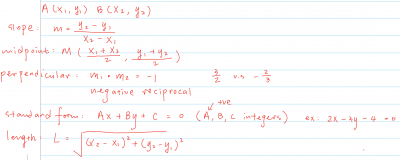 A(x₁, y₁) B(x₂, y₂)
slope: m = (y₂ - y₁)/(x₂ - x₁)
midpoint: M((x₁ + x₂)/2, (y₁ + y₂)/2)
perpendicular: m₁ · m₂ = -1 3/2 v.s -2/3
negative reciprocal
+ve
standard form: Ax + By + C = 0 (A, B, C integers) ex: 2x - 4y - 4 = 0
length: L = √((x₂ - x₁)² + (y₂ - y₁)²)